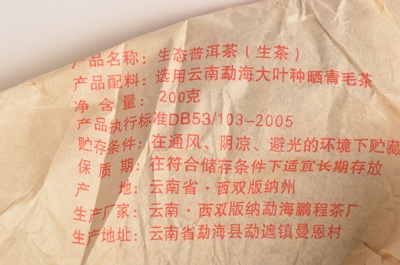 产品名称：生态普洱茶（生茶）
产品配料：选用云南勐海大叶种晒青毛茶
净 含 量：200克
产品执行标准DB53/103-2005
贮存条件：在通风、阴凉、避光的环境下贮藏
保 质 期：在符合储存条件下适宜长期存放
产 地：云南省·西双版纳州
生产厂家：云南·西双版纳勐海鹏程茶厂
生产地址：云南省勐海县勐遮镇曼恩村